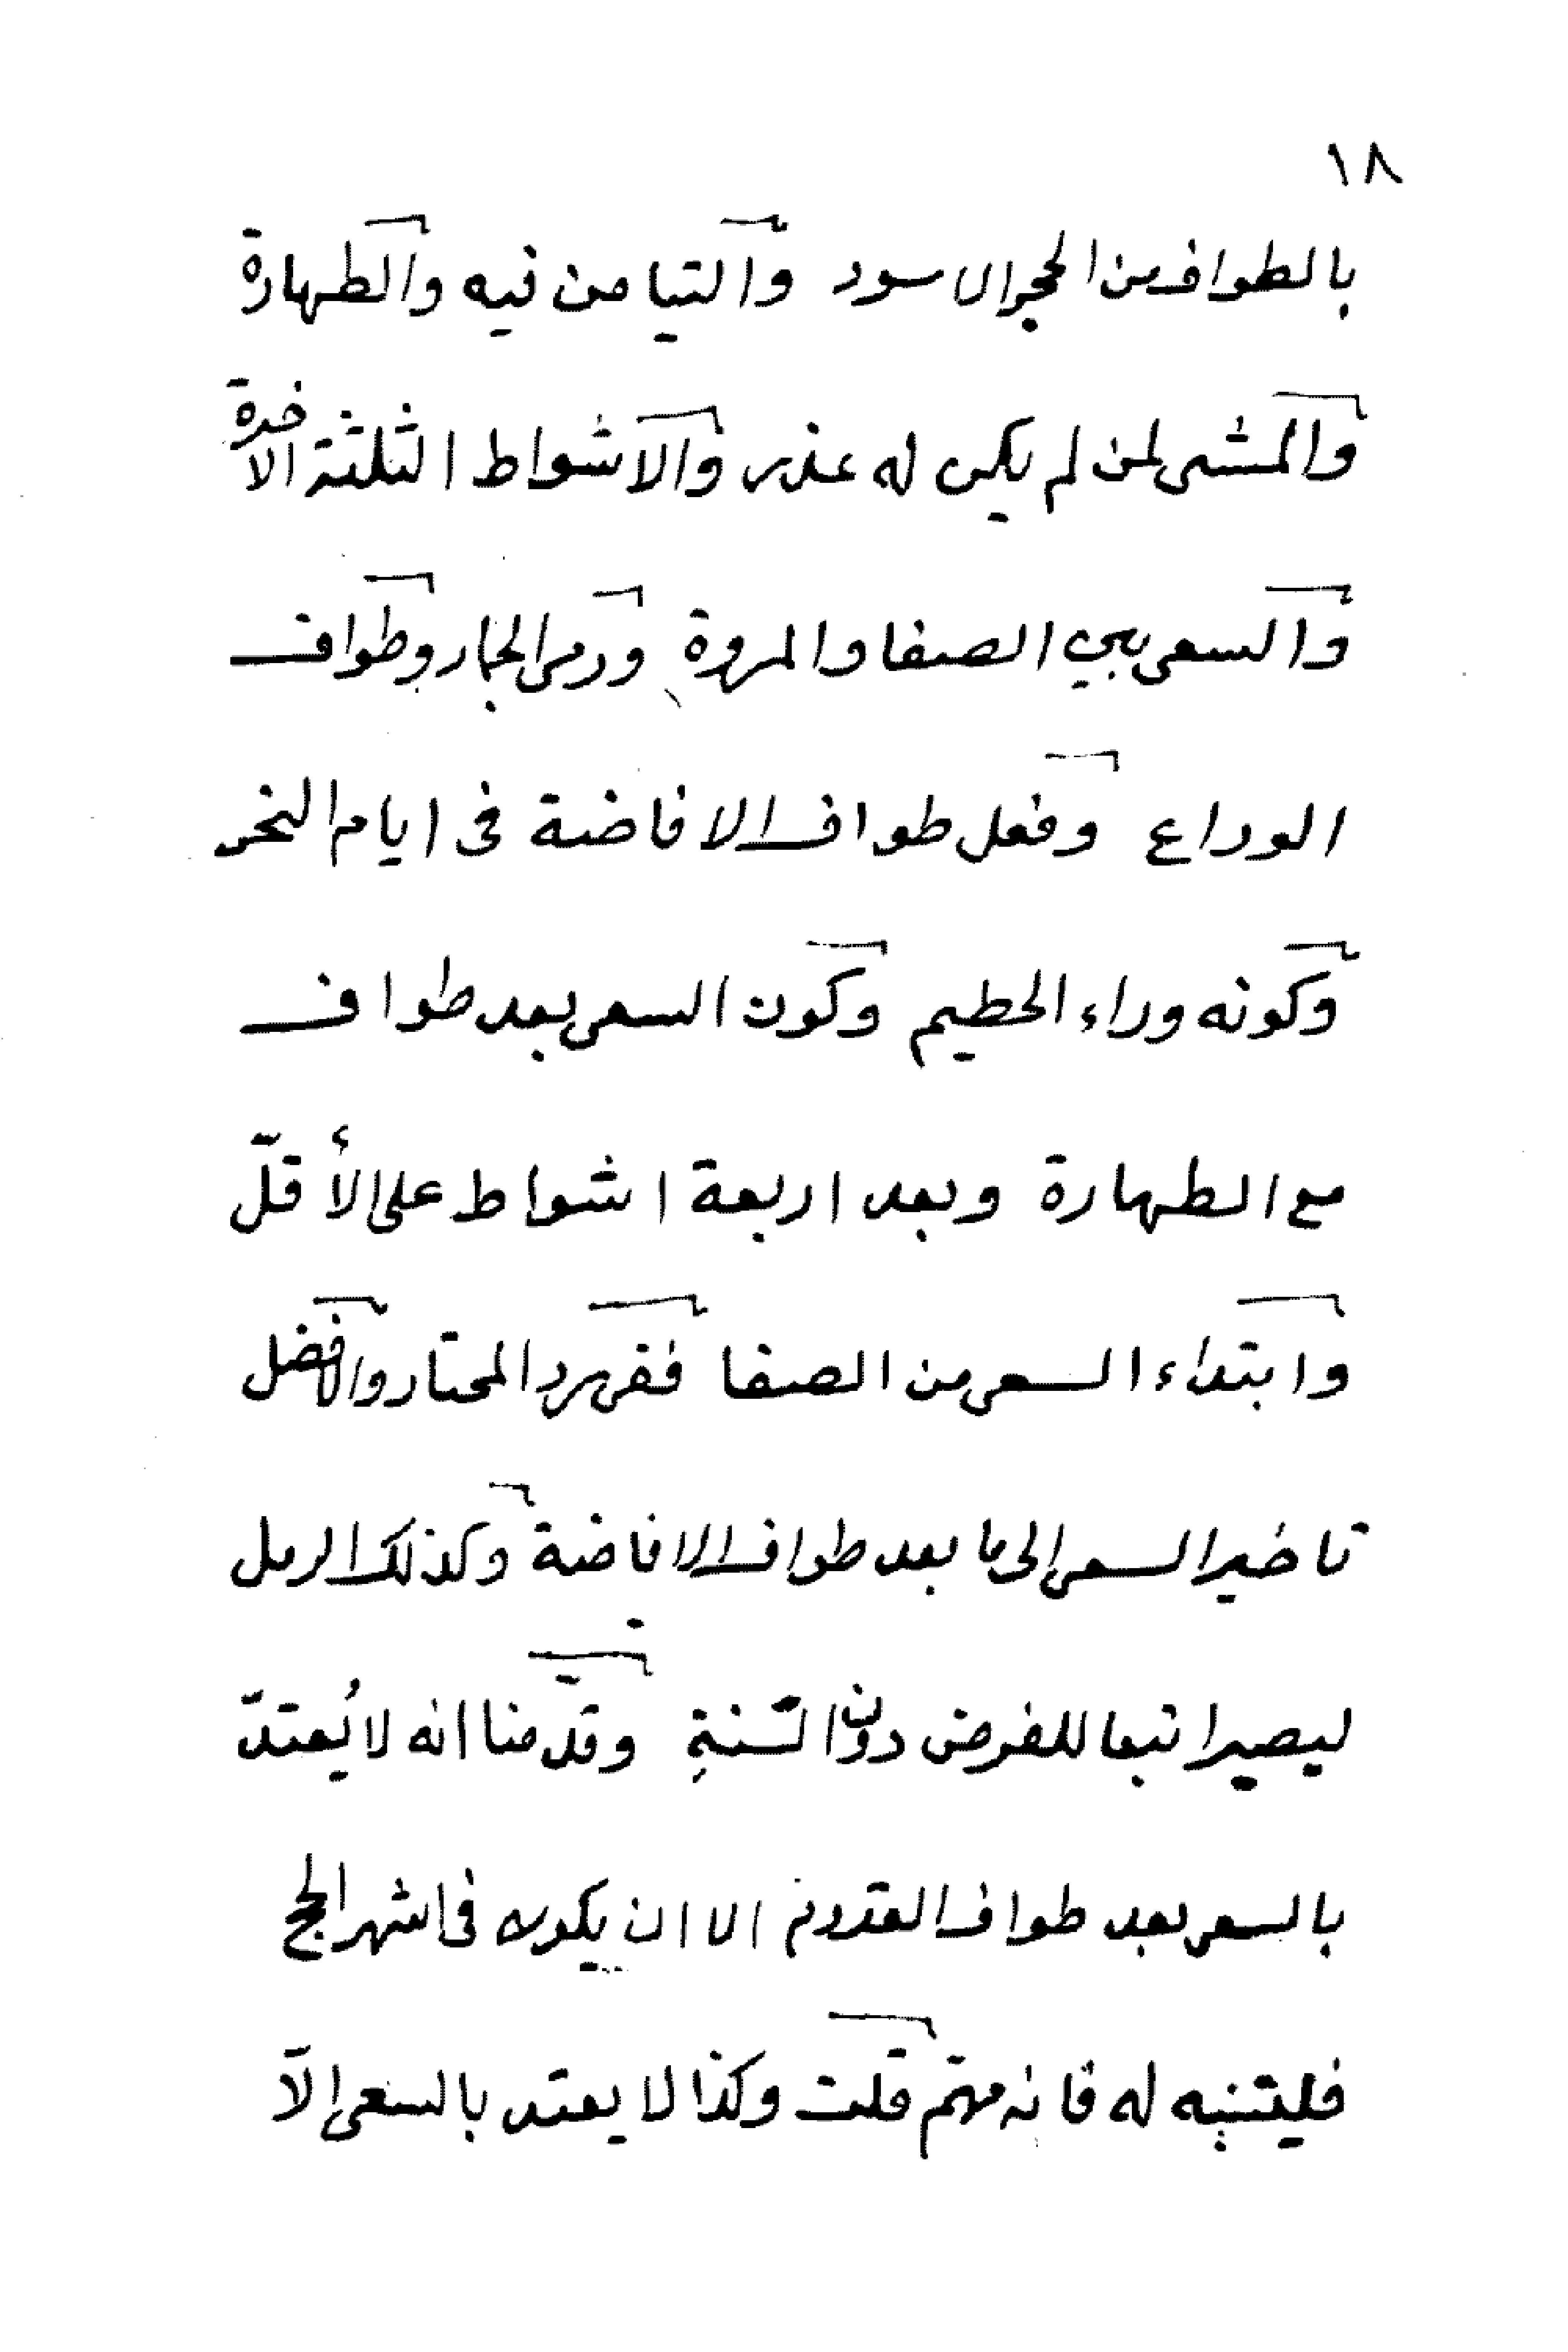 ١٨
بالطواف من الحجر الاسود والتيامن فيه والطهارة
والمشى لمن لم يكن له عذر والاشواط الثلثة الاخرة
والسعى بين الصفا والمروة ورمى الجمار وطواف
الوداع وفعل طواف الافاضة فى ايام النحر
وكونه وراء الحطيم وكون السعى بعد طواف
مع الطهارة وبعد اربعة اشواط على الأقلّ
وابتداء السعى من الصفا ففى رد المحتار والافضل
تاخير السعى الى ما بعد طواف الافاضة وكذلك الرمل
ليصيرا تبعا للفرض دون السّنةِ وقدّمنا انه لا يُعتدّ
بالسعى بعد طواف القدوم الا ان يكون فى اشهر الحج
فليتنبه له فانه مهتم قلت وكذا لا يعتد بالسعى الاّ